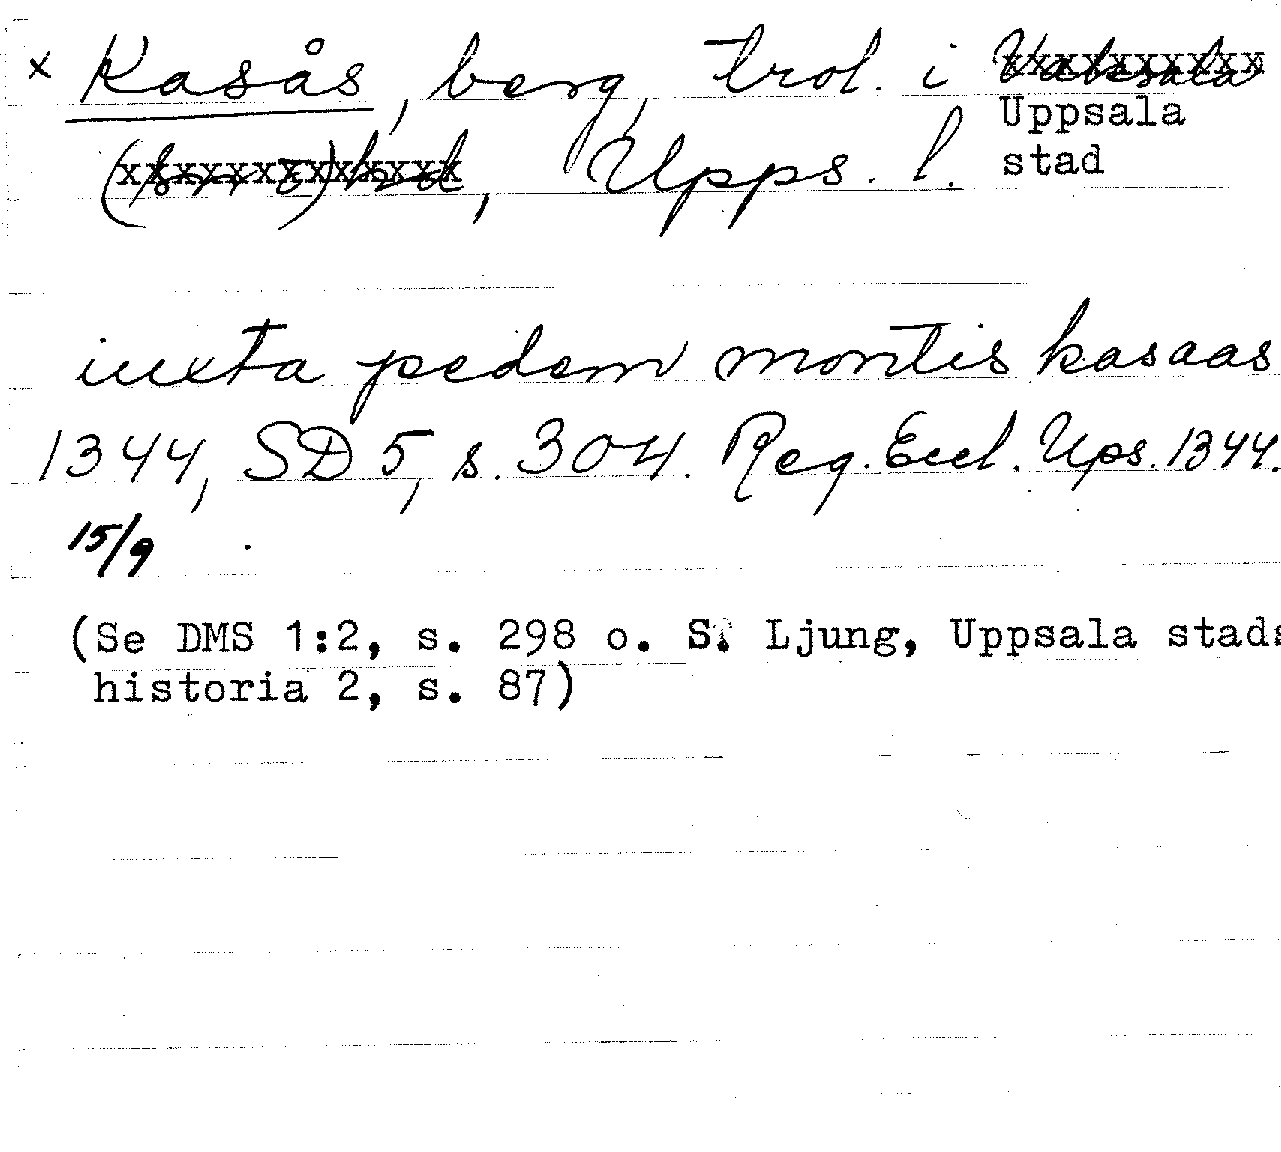 x Kasås, berg, trol. i Vaksala
Uppsala
stad
hd, Upps. l.
iuxta pedem montis kasaas
1344, SD 5, s. 304. Reg. Eccl. Ups. 1344.
15/9
(Se DMS 1:2, s. 298 o. S. Ljung, Uppsala stads
historia 2, s. 87)